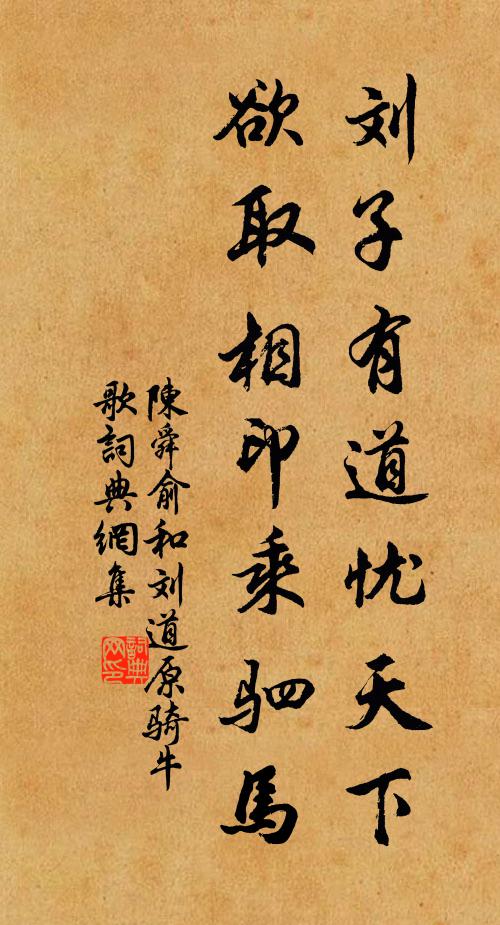 刘子有道忧天下
欲取相印乘驷馬
陳舜俞和刘道原骑牛
歌詞典網集
詞典
网印